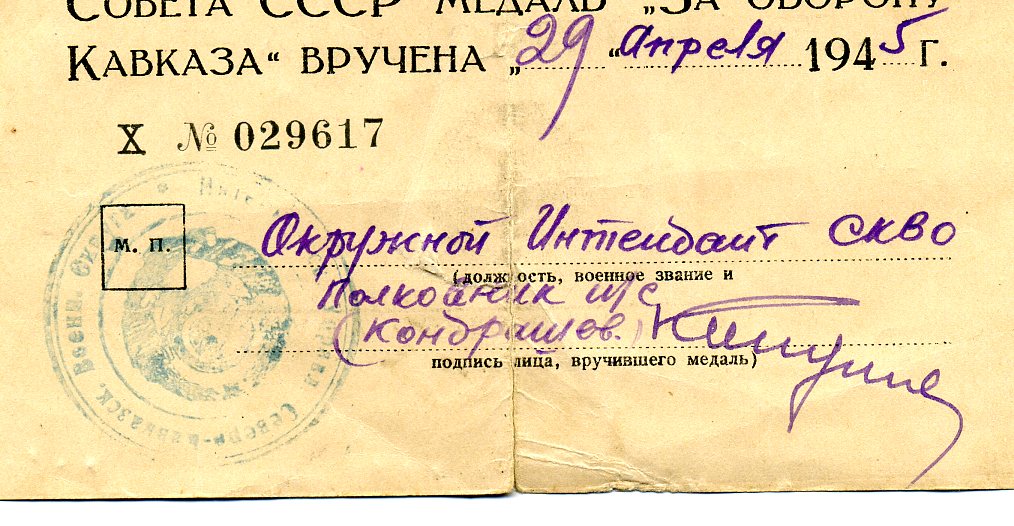 СОВЕТА СССР МЕДАЛЬ „ЗА ОБОРОНУ
КАВКАЗА“ ВРУЧЕНА „29“ апреля 1945 Г.
X № 029617
М. П.
Окружной Интендант СКВО
(должность, военное звание и
Полковник и/с
(Кондрашев.)
подпись лица, вручившего медаль)